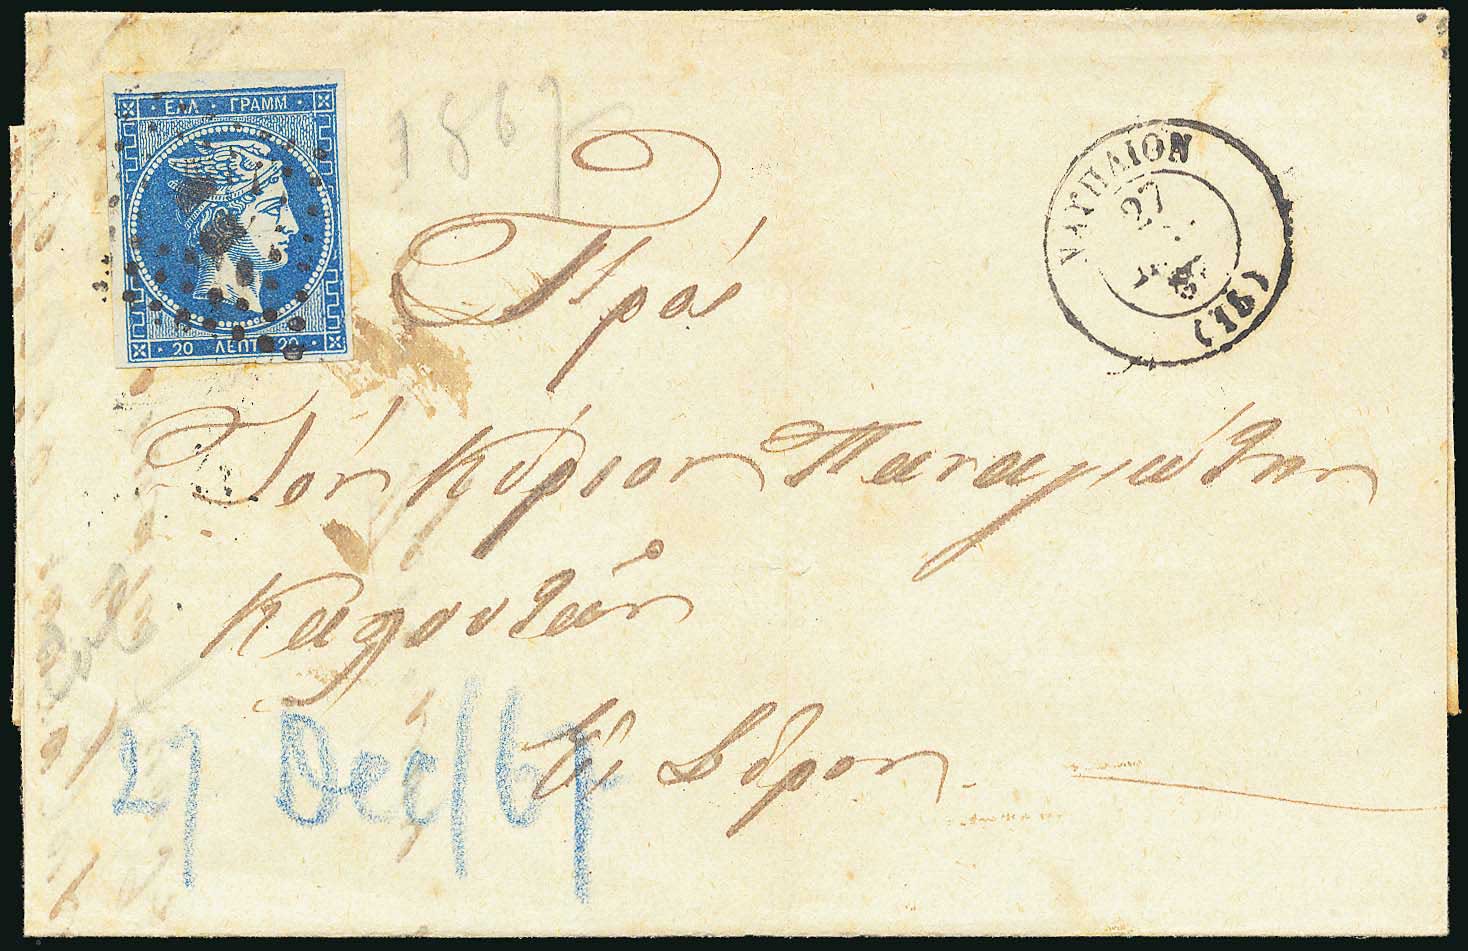 ΕΛΛ · ΓΡΑΜΜ
20 ΛΕΠΤ 20
1867
ΝΑΥΠΛΙΟΝ
27
(18)
Πρός
Τόν Κύριον Παναγιώτην
Εἰς Σύρον
27 Dec/67